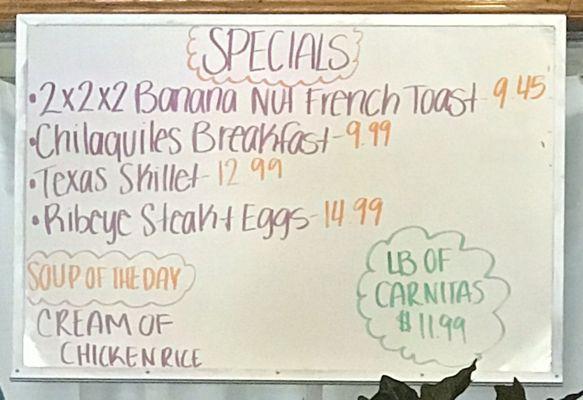 SPECIALS
•2x2x2 Banana Nut French Toast - 9.45
•Chilaquiles Breakfast - 9.99
•Texas Skillet - 12.99
•Ribeye Steak + Eggs - 14.99
SOUP OF THE DAY
CREAM OF
CHICKEN RICE
LB OF
CARNITAS
$11.99